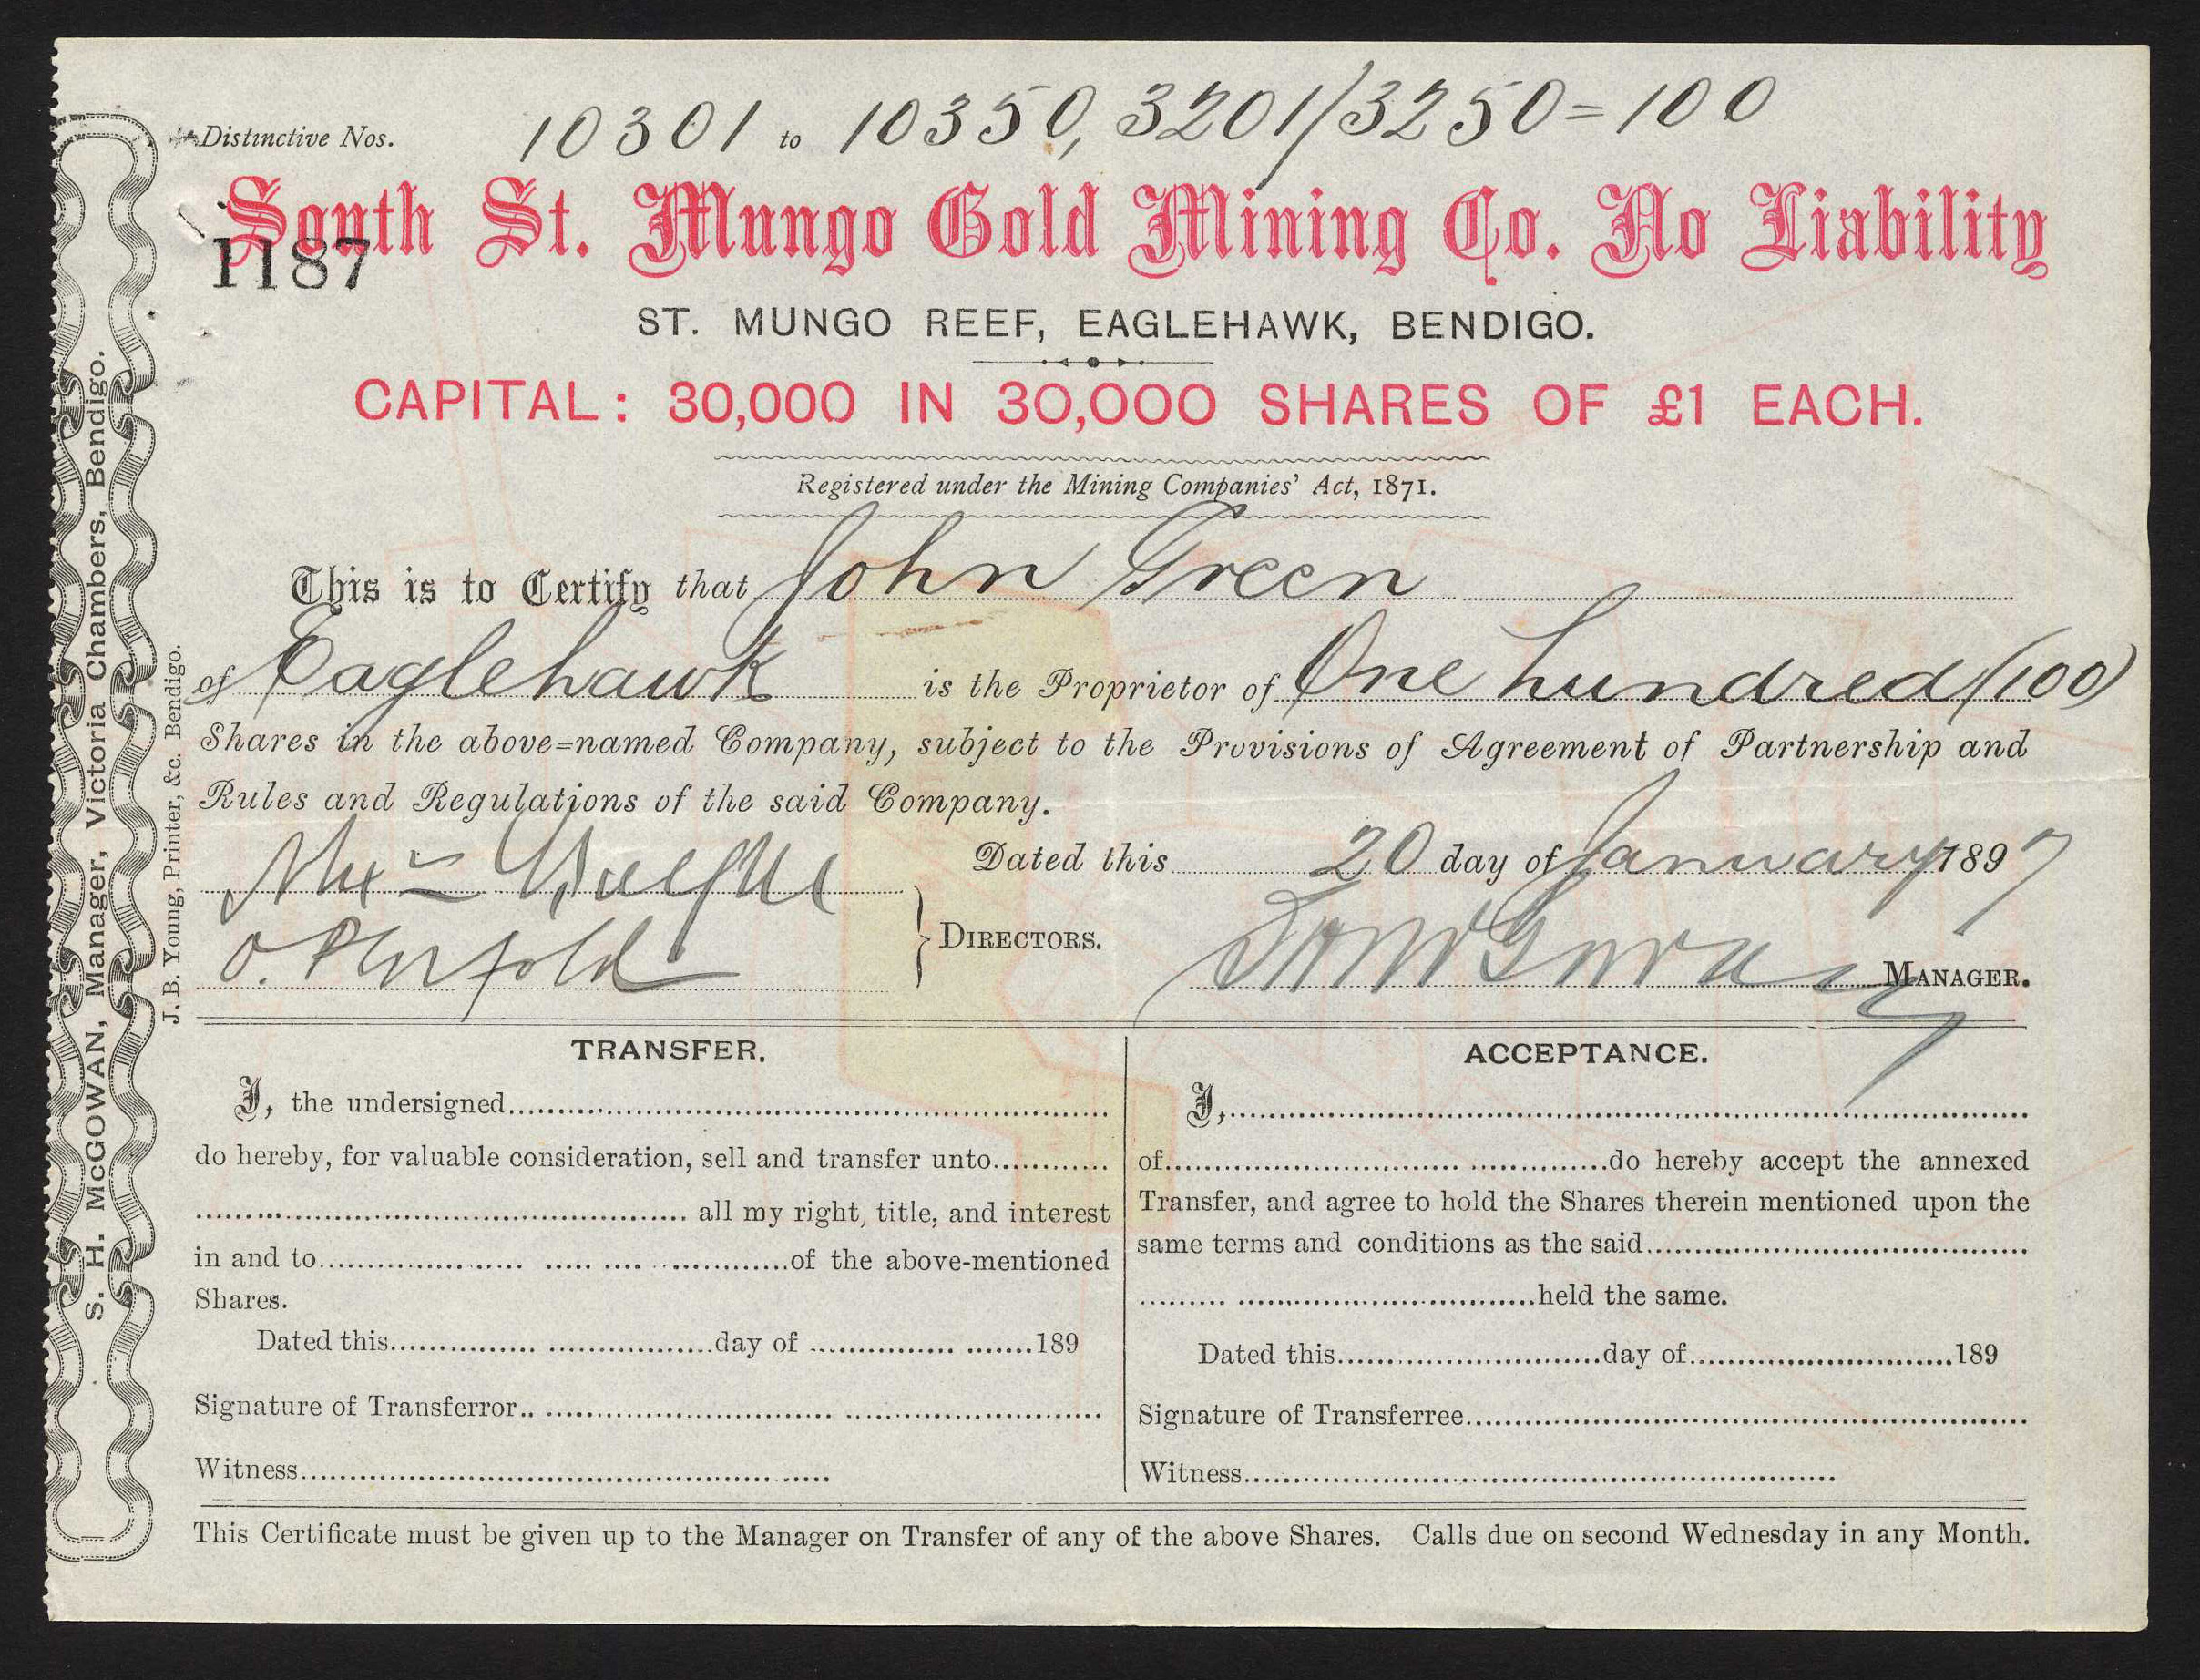 Distinctive Nos. 10301 to 10350, 3201/3250 = 100
South St. Mungo Gold Mining Co. No Liability
1187
ST. MUNGO REEF, EAGLEHAWK, BENDIGO.
CAPITAL: 30,000 IN 30,000 SHARES OF £1 EACH.
Registered under the Mining Companies' Act, 1871.
This is to Certify that John Green
of Eaglehawk is the Proprietor of One hundred (100)
Shares in the above=named Company, subject to the Provisions of Agreement of Partnership and
Rules and Regulations of the said Company.
Dated this 20 day of January 1897
O. Penfold
DIRECTORS.
S H McGowan MANAGER.
TRANSFER.
I, the undersigned
do hereby, for valuable consideration, sell and transfer unto
all my right, title, and interest
in and to of the above-mentioned
Shares.
Dated this day of 189
Signature of Transferror
Witness
ACCEPTANCE.
I,
of do hereby accept the annexed
Transfer, and agree to hold the Shares therein mentioned upon the
same terms and conditions as the said
held the same.
Dated this day of 189
Signature of Transferree
Witness
This Certificate must be given up to the Manager on Transfer of any of the above Shares. Calls due on second Wednesday in any Month.
S. H. McGOWAN, Manager, Victoria Chambers, Bendigo.
J. B. Young, Printer, &c. Bendigo.